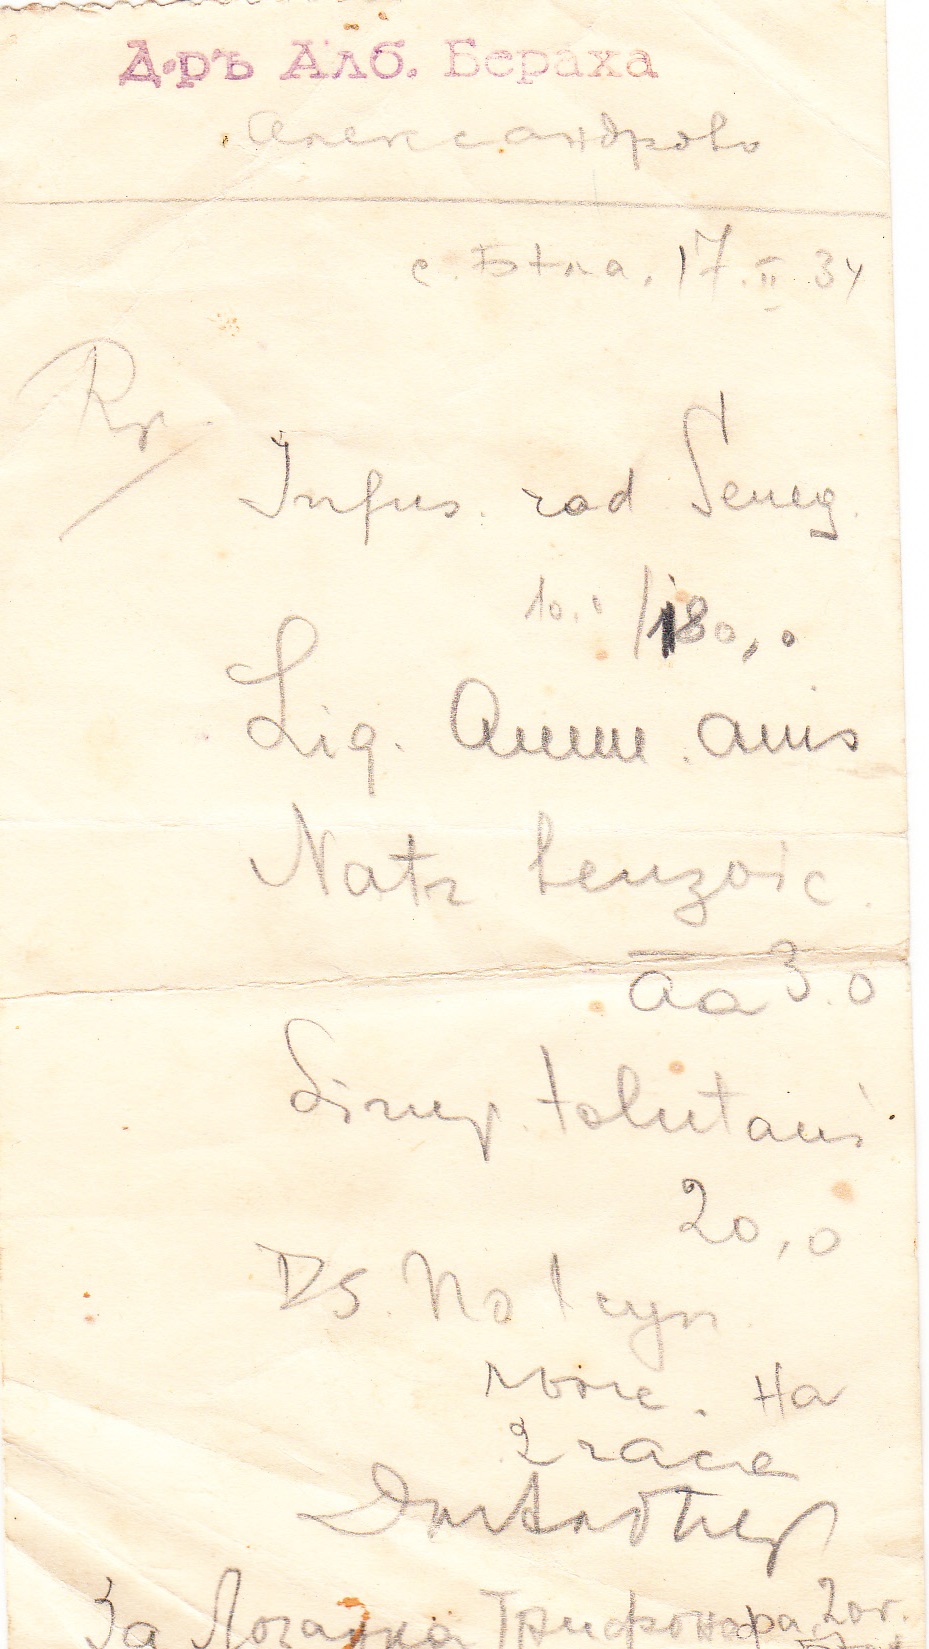 Д-ръ Алб. Бераха
Александрово
с. Бѣла, 17.II.34
Rp.
Infus. rad Seneg.
10.0/180,0
Liq. Amm. anis
Natr benzoic.
aa 3.0
Sirup. tolutani
20,0
DS. По 1 суп.
лъж. на
2 часа
За
Трифонова 20 г.